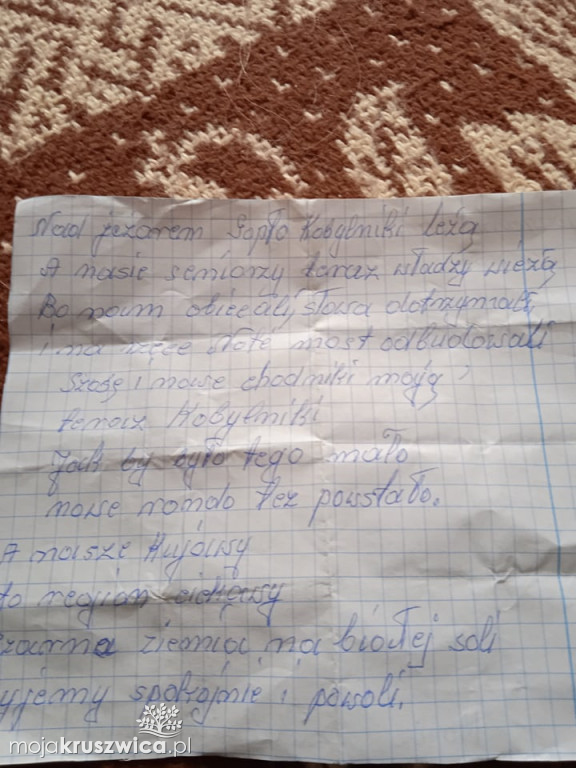 Nad jezorem Gopło Kobylniki leżą
A nasie seniorzy teraz władzy wierzą
Bo noim obiecali, słowa dotrzymali,
i na rzęce Noté most odbudowali
Szosę i nowe chodniki mają
teraz Kobylniki
Jak by było tego mało
nowe rondo też powstało.
A nasze Kujawy
to region ciekawy
czarna ziemia na białej soli
yjemy spokojnie i powoli.
mojakruszwica.pl